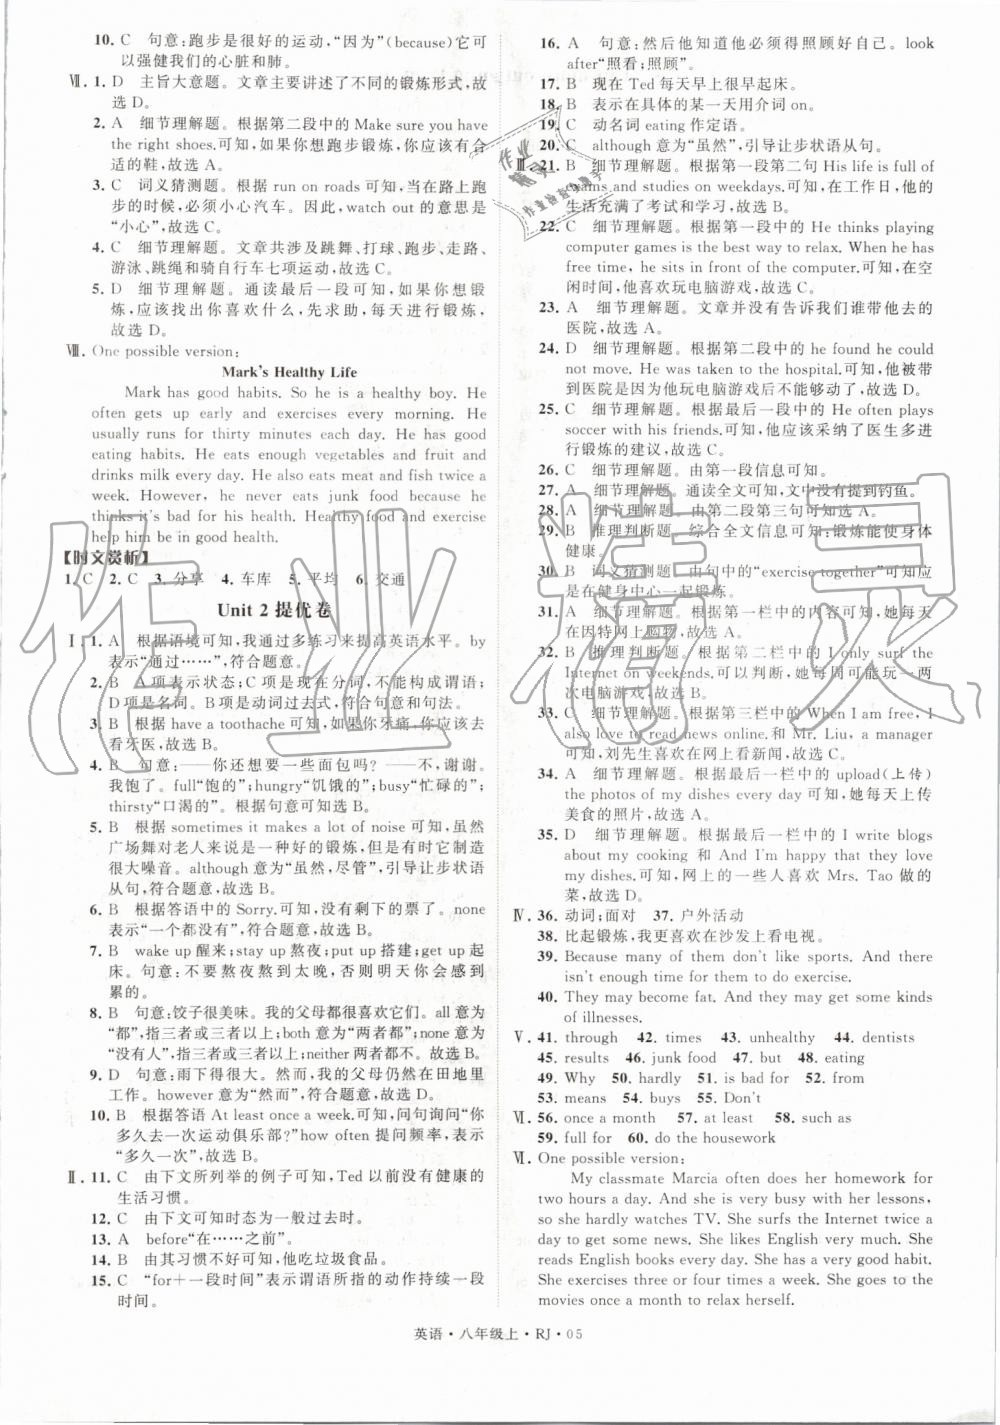 10. C 句意:跑步是很好的运动,“因为”(because)它可
以强健我们的心脏和肺。
Ⅶ. 1. D 主旨大意题。文章主要讲述了不同的锻炼形式,故
选 D。
2. A 细节理解题。根据第二段中的 Make sure you have
the right shoes.可知,如果你想跑步锻炼,你应该有合
适的鞋,故选 A。
3. C 词义猜测题。根据 run on roads 可知,当在路上跑
步的时候,必须小心汽车。因此,watch out 的意思是
“小心”,故选 C。
4. C 细节理解题。文章共涉及跳舞、打球、跑步、走路、
游泳、跳绳和骑自行车七项运动,故选 C。
5. D 细节理解题。通读最后一段可知,如果你想锻
炼,想想你喜欢什么,先求助,再进行锻炼,
故选 D。
Ⅷ. One possible version:
Mark's Healthy Life
Mark has good habits. So he is a healthy boy. He
often gets up early and exercises every morning. He
usually runs for thirty minutes each day. He has good
eating habits. He eats enough vegetables and fruit and
drinks milk every day. He also eats meat and fish twice a
week. However, he never eats junk food because he
thinks it's bad for his health. Healthy food and exercise
help him be in good health.
【时文赏析】
1. C 2. C 3. 分享 4. 车库 5. 平均 6. 交通
Unit 2 提优卷
Ⅰ. 1. A 根据语境可知,我通过多练习来提高英语水平。by
表示“通过……”,符合题意。
2. B A项表示状态;C项是现在分词,不能构成谓语;
D项是名词。B项是动词过去式,符合句意和句法。
3. B 根据 have a toothache 可知,如果你牙痛,你应该去
看牙医,故选 B。
4. B 句意:——你还想要一些面包吗? ——不,谢谢。
我饱了。full“饱的”;hungry“饥饿的”;busy“忙碌的”;
thirsty“口渴的”。根据句意可知选 B。
5. B 根据 sometimes it makes a lot of noise 可知,虽然
广场舞对老人来说是一种好的锻炼,但有时它制造
很大噪音。although 意为“虽然,尽管”,引导让步状语
从句,符合题意,故选 B。
6. B 根据答语中的 Sorry.可知,没有剩下的票了。none
表示“一个都没有”,符合题意,故选 B。
7. B wake up 醒来;stay up 熬夜;put up 搭建;get up 起
床。句意:不要熬夜熬到太晚,否则明天你会感到
累的。
8. B 句意:饺子很美味。我的父母都很喜欢它们。all 意
为“都”,指三者或三者以上;both 意为“两者都”;none 意为
“没有人”,指三者或三者以上;neither 两者都不。故选 B。
9. D 句意:雨下得很大。然而,我的父母仍然在田地里
工作。however 意为“然而”,符合题意,故选 D。
10. B 根据答语 At least once a week.可知,问句询问“你
多久去一次运动俱乐部?”how often 提问频率,表示
“多久一次”,故选 B。
Ⅱ. 11. C 由下文所列举的例子可知,Ted 以前没有健康的
生活习惯。
12. C 由下文可知时态为一般过去时。
13. A before“在……之前”。
14. B 由其习惯不好可知,他吃垃圾食品。
15. C “for+一段时间”表示谓语所指的动作持续一段
时间。
16. A 句意:然后他知道他必须得照顾好自己。look
after“照看;照顾”。
17. B 现在 Ted 每天早上很早起床。
18. B 表示在具体的某一天用介词 on。
19. C 动名词 eating 作定语。
20. C although 意为“虽然”,引导让步状语从句。
Ⅲ. 21. B 细节理解题。根据第一段第二句 His life is full of
exams and studies on weekdays.可知,在工作日,他的
生活充满了考试和学习,故选 B。
22. C 细节理解题。根据第一段中的 He thinks playing
computer games is the best way to relax. When he has
free time, he sits in front of the computer.可知,在空
闲时间,他喜欢玩电脑游戏,故选 C。
23. A 细节理解题。文章并没有告诉我们谁带他去的
医院,故选 A。
24. D 细节理解题。根据第二段中的 he found he could
not move. He was taken to the hospital.可知,他被带
到医院是因为他玩电脑游戏后不能够动了,故选 D。
25. C 细节理解题。根据最后一段中的 He often plays
soccer with his friends.可知,他应该采纳了医生多进
行锻炼的建议,故选 C。
26. C 细节理解题。由第一段信息可知。
27. A 细节理解题。通读全文可知,文中没有提到钓鱼。
28. A 细节理解题。由第二段第二句可知。
29. B 推理判断题。综合全文信息可知;锻炼能使身体
健康。
30. B 词义猜测题。由句中的“exercise together”可知应
是在健身中心一起锻炼。
31. A 细节理解题。根据第一栏中的内容可知,她每天
在因特网上购物,故选 A。
32. B 推理判断题。根据第二栏中的 I only surf the
Internet on weekends.可以判断,她每周可能玩一两
次电脑游戏,故选 B。
33. C 细节理解题。根据第三栏中的 When I am free, I
also love to read news online.和 Mr. Liu, a manager
可知,刘先生喜欢在网上看新闻,故选 C。
34. A 细节理解题。根据最后一栏中的 upload(上传)
the photos of my dishes every day 可知,她每天上传
美食的照片,故选 A。
35. D 细节理解题。根据最后一栏中的 I write blogs
about my cooking 和 And I'm happy that they love
my dishes.可知,网上的一些人喜欢 Mrs. Tao 做的
菜,故选 D。
Ⅳ. 36. 动词;面对 37. 户外活动
38. 比起锻炼,我更喜欢在沙发上看电视。
39. Because many of them don't like sports. And there
isn't enough time for them to do exercise.
40. They may become fat. And they may get some kinds
of illnesses.
Ⅴ. 41. through 42. times 43. unhealthy 44. dentists
45. results 46. junk food 47. but 48. eating
49. Why 50. hardly 51. bad 52. does
53. means 54. buys 55. Don't
Ⅵ. 56. once a month 57. at least 58. such as
59. full for 60. do the housework
Ⅶ. One possible version:
My classmate Marcia often does her homework for
two hours a day. And she is very busy with her lessons,
so she hardly watches TV. She surfs the Internet twice a
day to get some news. She likes English very much. She
reads English books every day. She has a very good habit.
She exercises three or four times a week. She goes to the
movies once a month to relax herself.
英语·八年级上·RJ·05
作业精灵